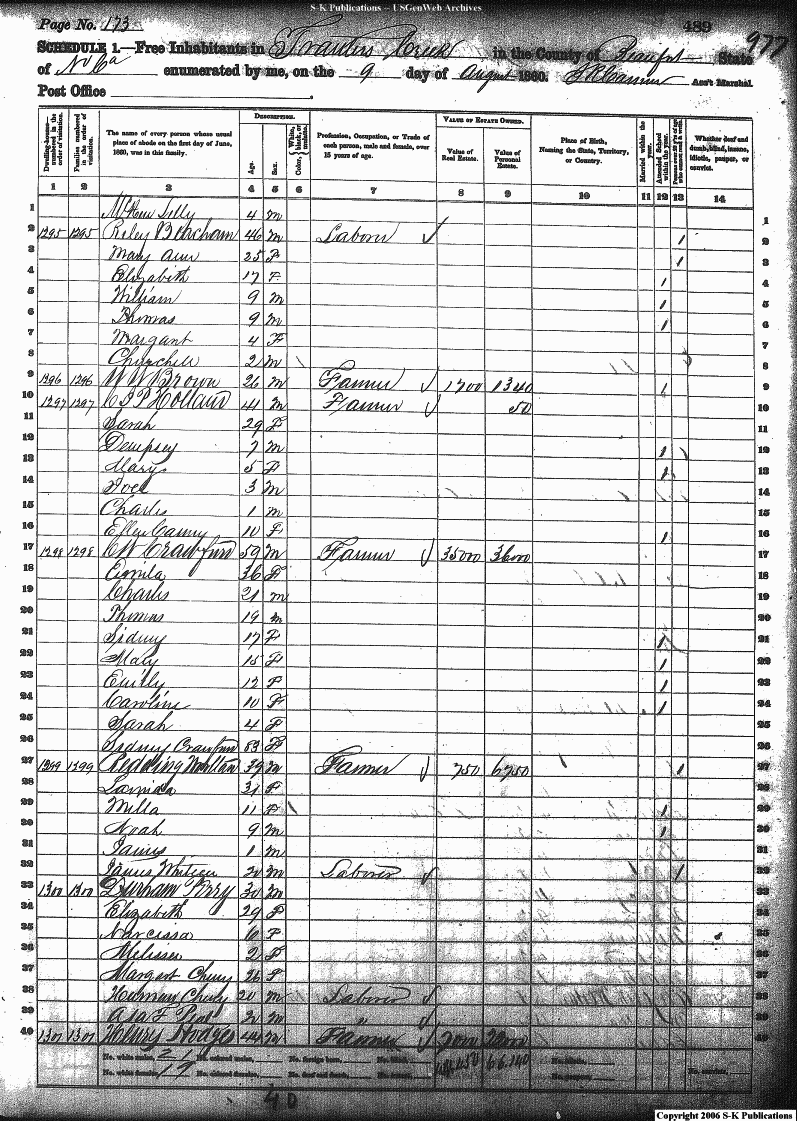 S-K Publications – USGenWeb Archives
Page No. 173
489
977
SCHEDULE 1.—Free Inhabitants in Tranters Creek in the County of Beaufort State
of No Ca enumerated by me, on the 9 day of August 1860. Ass't Marshal.
Post Office
Dwelling-houses— numbered in the order of visitation.
Families numbered in the order of visitation.
The name of every person whose usual place of abode on the first day of June, 1860, was in this family.
DESCRIPTION.
Age.
Sex.
Color, White, black, or mulatto.
Profession, Occupation, or Trade of each person, male and female, over 15 years of age.
VALUE OF ESTATE OWNED.
Value of Real Estate.
Value of Personal Estate.
Place of Birth, Naming the State, Territory, or Country.
Married within the year.
Attended School within the year.
Persons over 20 y'rs of age who cannot read & write.
Whether deaf and dumb, blind, insane, idiotic, pauper, or convict.
1 2 3 4 5 6 7 8 9 10 11 12 13 14
1 Lilly 4 M 1
2 1295 1295 Riley Beacham 46 M Laborer 1 2
3 Mary Ann 25 F 1 3
4 Elizabeth 17 F 1 4
5 William 9 M 1 5
6 Thomas 9 M 1 6
7 Margaret 4 F 7
8 Churchill 2 M 8
9 1296 1296 W W Brown 26 M Farmer 1700 1340 1 9
10 1297 1297 Holland 41 M Farmer 50 10
11 Sarah 29 F 11
12 Dempsey 7 M 1 12
13 Mary 5 F 1 13
14 Joel 3 M 14
15 Charles 1 M 15
16 Ellen 10 F 1 16
17 1298 1298 C W Crawford 59 M Farmer 35000 36000 17
18 36 F 18
19 Charles 21 M 19
20 Thomas 19 M 20
21 Sidney 17 F 1 21
22 Mary 15 F 1 22
23 Emily 12 F 1 23
24 Caroline 10 F 1 24
25 Sarah 4 F 25
26 Sidney Crawford 53 F 26
27 1299 1299 Redding 39 M Farmer 750 6750 1 27
28 31 F 28
29 Milla 11 F 1 29
30 Noah 9 M 1 30
31 James 1 M 31
32 James 20 M Laborer 1 32
33 1300 1300 Durham Perry 30 M 33
34 Elizabeth 29 F 34
35 Narcissa 6 F 35
36 Melissa 2 F 36
37 Margaret Cherry 26 F 37
38 Cherry 20 M Laborer 38
39 Asa F 2 M " 39
40 1301 1301 Henry Hodges 44 M Farmer 2000 40
No. white males, 21 No. colored males, No. foreign born, No. blind,
No. white females, 19 No. colored females, No. deaf and dumb,
40
Copyright 2006 S-K Publications